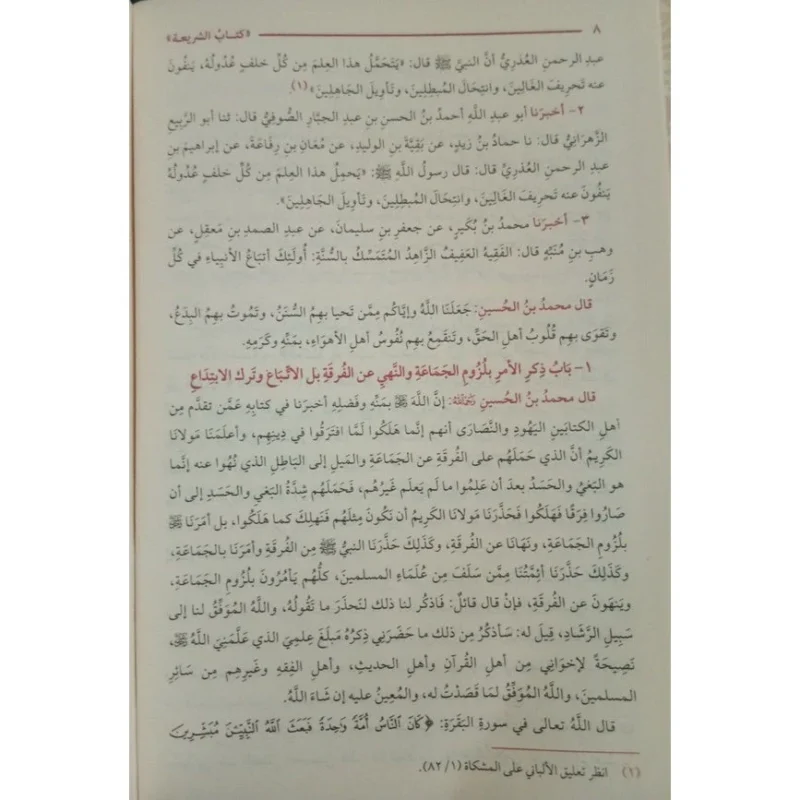 ٨ «كتـابُ الشريعة»
عبدِ الرحمنِ العُذَرِيُّ أنَّ النبيَّ ﷺ قال: «يَتَحَمَّلُ هذا العِلمَ مِن كُلِّ خلفٍ عُدُولُهُ، يَنفُونَ
عنه تَحرِيفَ الغَالِينَ، وانتِحَالَ المُبطِلِينَ، وتَأوِيلَ الجَاهِلِينَ»(١).
٢- أخبرَنا أبو عبدِ اللَّهِ أحمدُ بنُ الحسنِ بنِ عبدِ الجبَّارِ الصُّوفِيُّ قال: ثنا أبو الرَّبِيعِ
الزَّهرَانِيُّ قال: نا حمادُ بنُ زيدٍ، عن بَقِيَّةَ بنِ الوليدِ، عن مُعَانِ بنِ رِفَاعَةَ، عن إبراهيمَ بنِ
عبدِ الرحمنِ العُذَرِيِّ قال: قال رسولُ اللَّهِ ﷺ: «يَحمِلُ هذا العِلمَ مِن كُلِّ خلفٍ عُدُولُهُ
يَنفُونَ عنه تَحرِيفَ الغَالِينَ، وانتِحَالَ المُبطِلِينَ، وتَأوِيلَ الجَاهِلِينَ».
٣- أخبرَنا محمدُ بنُ بُكَيرٍ، عن جعفرِ بنِ سليمانَ، عن عبدِ الصمدِ بنِ مَعقِلٍ، عن
وهبِ بنِ مُنَبِّهٍ قال: الفَقِيهُ العَفِيفُ الزَّاهِدُ المُتَمَسِّكُ بالسُّنَّةِ: أُولَئِكَ أتبَاعُ الأنبِياءِ في كُلِّ
زَمَانٍ.
قال محمدُ بنُ الحُسينِ: جَعَلَنَا اللَّهُ وإيَّاكُم مِمَّن تَحيا بهِمُ السُّنَنُ، وتَمُوتُ بهِمُ البِدَعُ،
وتَقوَى بهِم قُلُوبُ أهلِ الحَقِّ، وتَنقَمِعُ بهِم نُفُوسُ أهلِ الأهوَاءِ، بمَنِّهِ وكَرَمِهِ.
١- بَابُ ذِكرِ الأمرِ بلُزُومِ الجَمَاعَةِ والنَّهيِ عن الفُرقَةِ بل الاتِّبَاعُ وتَركُ الابتِدَاعِ
قال محمدُ بنُ الحُسينِ رَحِمَهُ اللهُ: إنَّ اللَّهَ ﷻ بمَنِّهِ وفَضلِهِ أخبرَنا في كتابِهِ عَمَّن تقدَّم مِن
أهلِ الكتابَينِ اليَهُودِ والنَّصَارَى أنهم إنَّما هَلَكُوا لَمَّا افتَرَقُوا في دِينِهِم، وأعلَمَنَا مَولانَا
الكَرِيمُ أنَّ الذي حَمَلَهُم على الفُرقَةِ عن الجَمَاعَةِ والمَيلِ إلى البَاطِلِ الذي نُهُوا عنه إنَّما
هو البَغيُ والحَسَدُ بعدَ أن عَلِمُوا ما لَم يَعلَم غَيرُهُم، فَحَمَلَهُم شِدَّةُ البَغيِ والحَسَدِ إلى أن
صَارُوا فِرَقًا فَهَلَكُوا فَحَذَّرَنَا مَولانَا الكَرِيمُ أن نَكُونَ مِثلَهُم فَنَهلِكَ كما هَلَكُوا، بل أمَرَنَا ﷻ
بلُزُومِ الجَمَاعَةِ، ونَهَانَا عن الفُرقَةِ، وكَذَلِكَ حَذَّرَنَا النبيُّ ﷺ مِن الفُرقَةِ وأمَرَنَا بالجَمَاعَةِ،
وكَذَلِكَ حَذَّرَنَا أئِمَّتُنَا مِمَّن سَلَفَ مِن عُلَمَاءِ المسلمينَ، كلُّهُم يَأمُرُونَ بلُزُومِ الجَمَاعَةِ،
ويَنهَونَ عن الفُرقَةِ، فإنْ قال قائلٌ: فَاذكُر لنا ذلك لنَحذَرَ ما تَقُولُهُ، واللَّهُ المُوَفِّقُ لنا إلى
سَبِيلِ الرَّشَادِ، قِيلَ له: سَأذكُرُ مِن ذلك ما حَضَرَني ذِكرُهُ مَبلَغَ عِلمِيَ الذي عَلَّمَنِيَ اللَّهُ ﷻ،
نَصِيحَةً لإخوَانِي مِن أهلِ القُرآنِ وأهلِ الحديثِ، وأهلِ الفِقهِ وغَيرِهِم مِن سَائِرِ
المسلمينَ، واللَّهُ المُوَفِّقُ لمَا قَصَدْتُ له، والمُعِينُ عليه إن شَاءَ اللَّهُ.
قال اللَّهُ تعالى في سورةِ البَقَرَةِ: ﴿كَانَ ٱلنَّاسُ أُمَّةً وَٰحِدَةً فَبَعَثَ ٱللَّهُ ٱلنَّبِيِّـۧنَ مُبَشِّرِينَ
(١) انظر تعليق الألباني على المشكاة (١/ ٨٢).